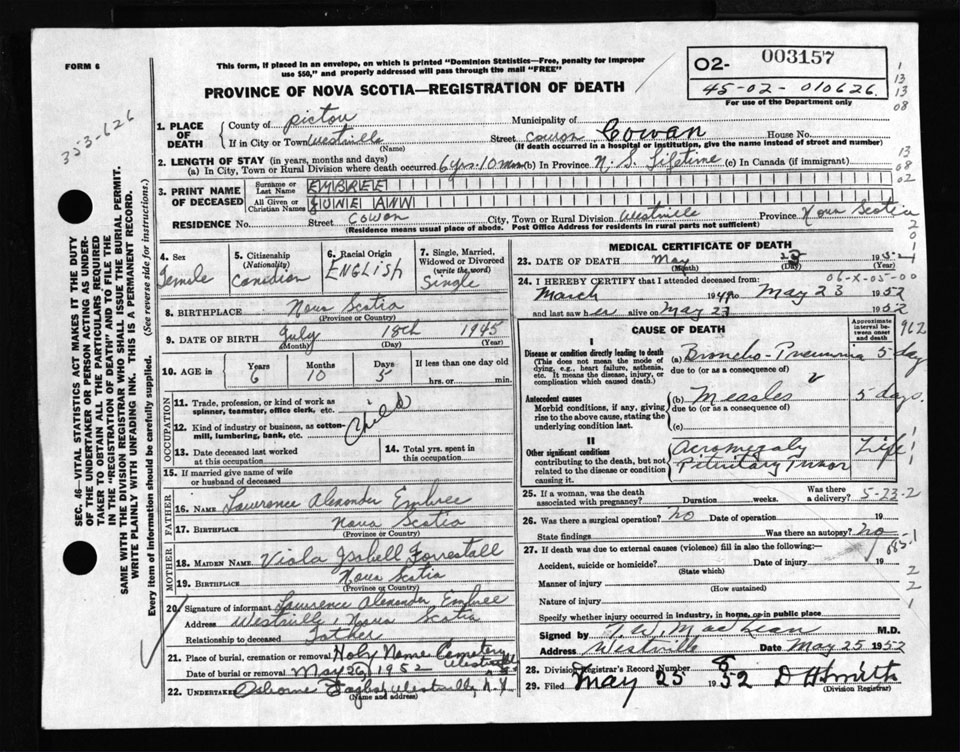 FORM 6
This form, if placed in an envelope, on which is printed "Dominion Statistics—Free, penalty for improper
use $50," and properly addressed will pass through the mail "FREE"
PROVINCE OF NOVA SCOTIA—REGISTRATION OF DEATH
O2- 003157
45-02-010626.
For use of the Department only
1
13
13
08
13
08
02
353-626
SEC. 46—VITAL STATISTICS ACT MAKES IT THE DUTY
OF THE UNDERTAKER OR PERSON ACTING AS UNDER-
TAKER TO OBTAIN ALL THE PARTICULARS REQUIRED
IN THE "REGISTRATION OF DEATH" AND TO FILE THE
SAME WITH THE DIVISION REGISTRAR WHO SHALL ISSUE THE BURIAL PERMIT.
WRITE PLAINLY WITH UNFADING INK. THIS IS A PERMANENT RECORD.
Every item of information should be carefully supplied. (See reverse side for instructions.)
1. PLACE OF DEATH
County of Pictou Municipality of
If in City or Town Westville (Name) Street Cowan Cowan House No.
(If death occurred in a hospital or institution, give the name instead of street and number)
2. LENGTH OF STAY (in years, months and days)
(a) In City, Town or Rural Division where death occurred 6 yrs. 10 mos (b) In Province N. S. Lifetime (c) In Canada (if immigrant)
3. PRINT NAME OF DECEASED
Surname or Last Name EMBREE
All Given or Christian Names JUNE ANN
RESIDENCE No. Street Cowan City, Town or Rural Division Westville Province Nova Scotia
(Residence means usual place of abode. Post Office Address for residents in rural parts not sufficient)
4. Sex Female
5. Citizenship (Nationality) Canadian
6. Racial Origin ENGLISH
7. Single, Married, Widowed or Divorced (write the word) Single
8. BIRTHPLACE Nova Scotia
(Province or Country)
9. DATE OF BIRTH July 18th 1945
(Month) (Day) (Year)
10. AGE in Years 6 Months 10 Days 5 If less than one day hrs. or min.
OCCUPATION
11. Trade, profession, or kind of work as spinner, teamster, office clerk, etc.
12. Kind of industry or business, as cotton-mill, lumbering, bank, etc.
Child
13. Date deceased last worked at this occupation
14. Total yrs. spent in this occupation
15. If married give name of wife or husband of deceased
FATHER
16. NAME Lawrence Alexander Embree
17. BIRTHPLACE Nova Scotia
(Province or Country)
MOTHER
18. MAIDEN NAME Viola Isbell Forrestall
19. BIRTHPLACE Nova Scotia
(Province or Country)
20. Signature of informant Lawrence Alexander Embree
Address Westville, Nova Scotia
Relationship to deceased Father
21. Place of burial, cremation or removal Holy Name Cemetery
Westville
Date of burial or removal May 26, 1952
22. UNDERTAKER Westville, N.S.
(Name and address)
MEDICAL CERTIFICATE OF DEATH
23. DATE OF DEATH May 23 1952
(Month) (Day) (Year)
06-X-05-00
24. I HEREBY CERTIFY that I attended deceased from:
March 1949 to May 23 1952
and last saw her alive on May 23 1952
CAUSE OF DEATH
Approximate interval between onset and death
I
Disease or condition directly leading to death
(This does not mean the mode of dying, e.g., heart failure, asthenia, etc. It means the disease, injury, or complication which caused death.)
(a) Broncho-Pneumonia 5 day
due to (or as a consequence of)
Antecedent causes
Morbid conditions, if any, giving rise to the above cause, stating the underlying condition last.
(b) Measles 5 days.
due to (or as a consequence of)
(c)
II
Other significant conditions
contributing to the death, but not related to the disease or condition causing it.
Acromegaly Life
Pituitary Tumor
25. If a woman, was the death associated with pregnancy? Duration weeks. Was there a delivery? 5-23-2
26. Was there a surgical operation? no Date of operation 19
State findings Was there an autopsy? no
27. If death was due to external causes (violence) fill in also the following:—
085-1
Accident, suicide or homicide? Date of injury 19
(State which)
Manner of injury
(How sustained)
Nature of injury
Specify whether injury occurred in industry, in home, or in public place
Signed by T. W. MacLean M.D.
Address Westville Date May 25 1952
28. Division Registrar's Record Number 8
29. Filed May 25 1952 D H Smith
(Division Registrar)